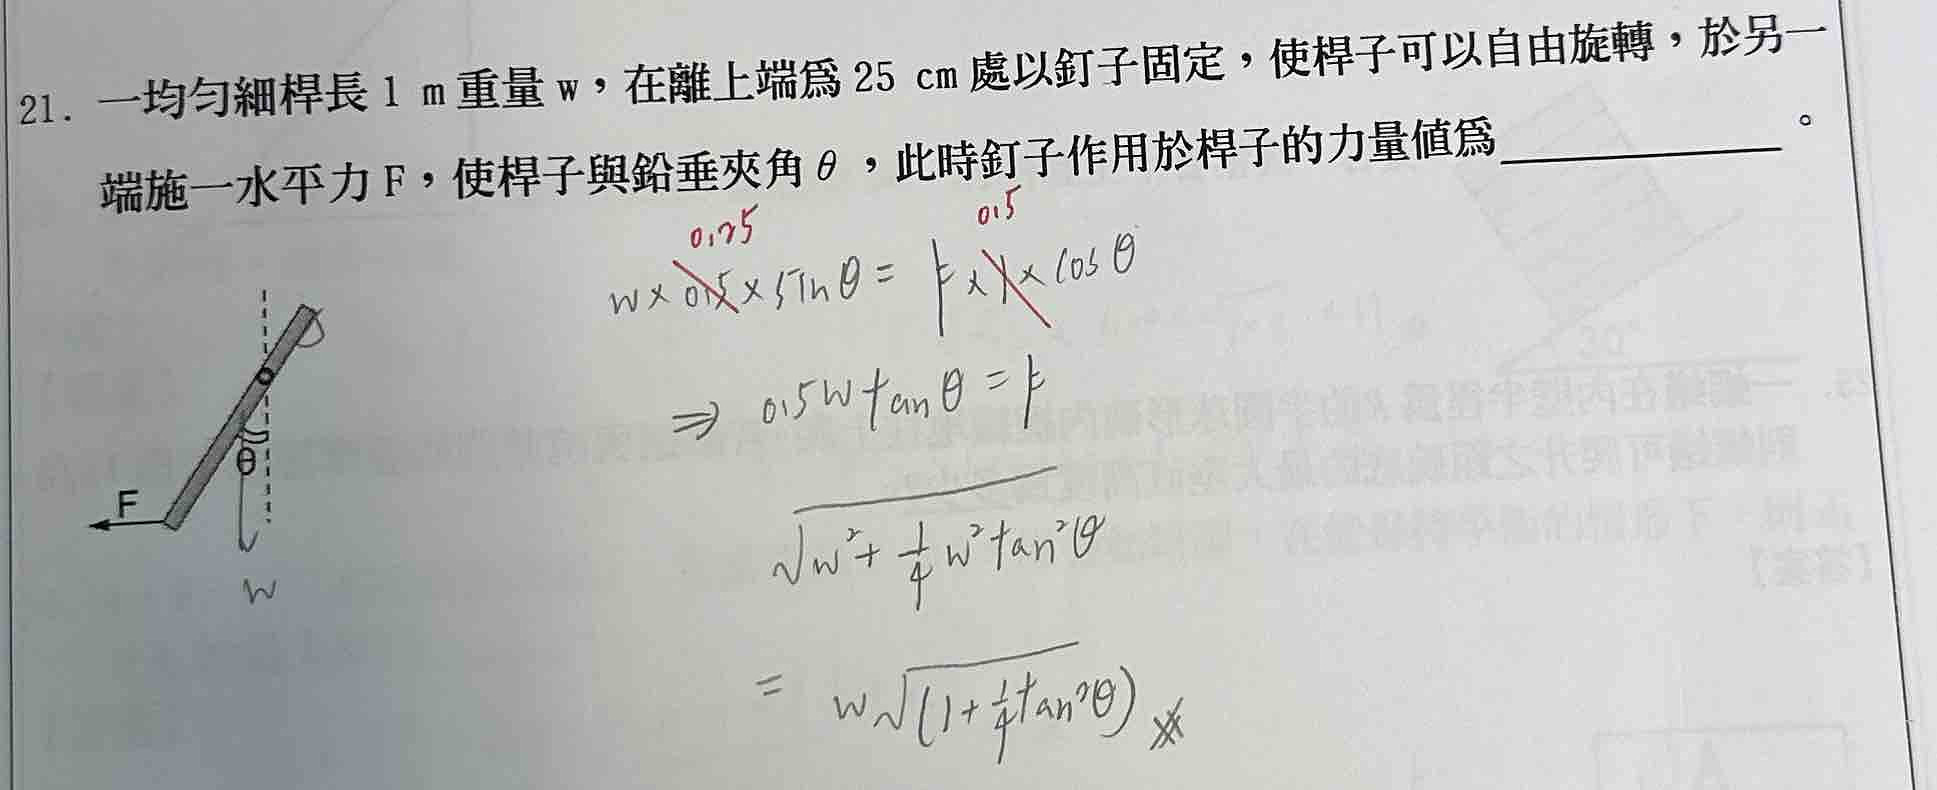 21. 一均勻細桿長 1 m 重量 w，在離上端爲 25 cm 處以釘子固定，使桿子可以自由旋轉，於另一
端施一水平力 F，使桿子與鉛垂夾角 θ，此時釘子作用於桿子的力量値爲＿＿＿＿＿＿。
0.25 0.5
w × 0.5 × sin θ = F × 1 × cos θ
⇒ 0.5 w tan θ = F
√(w² + 1/4 w² tan² θ)
= w√(1 + 1/4 tan² θ)
θ
F
w